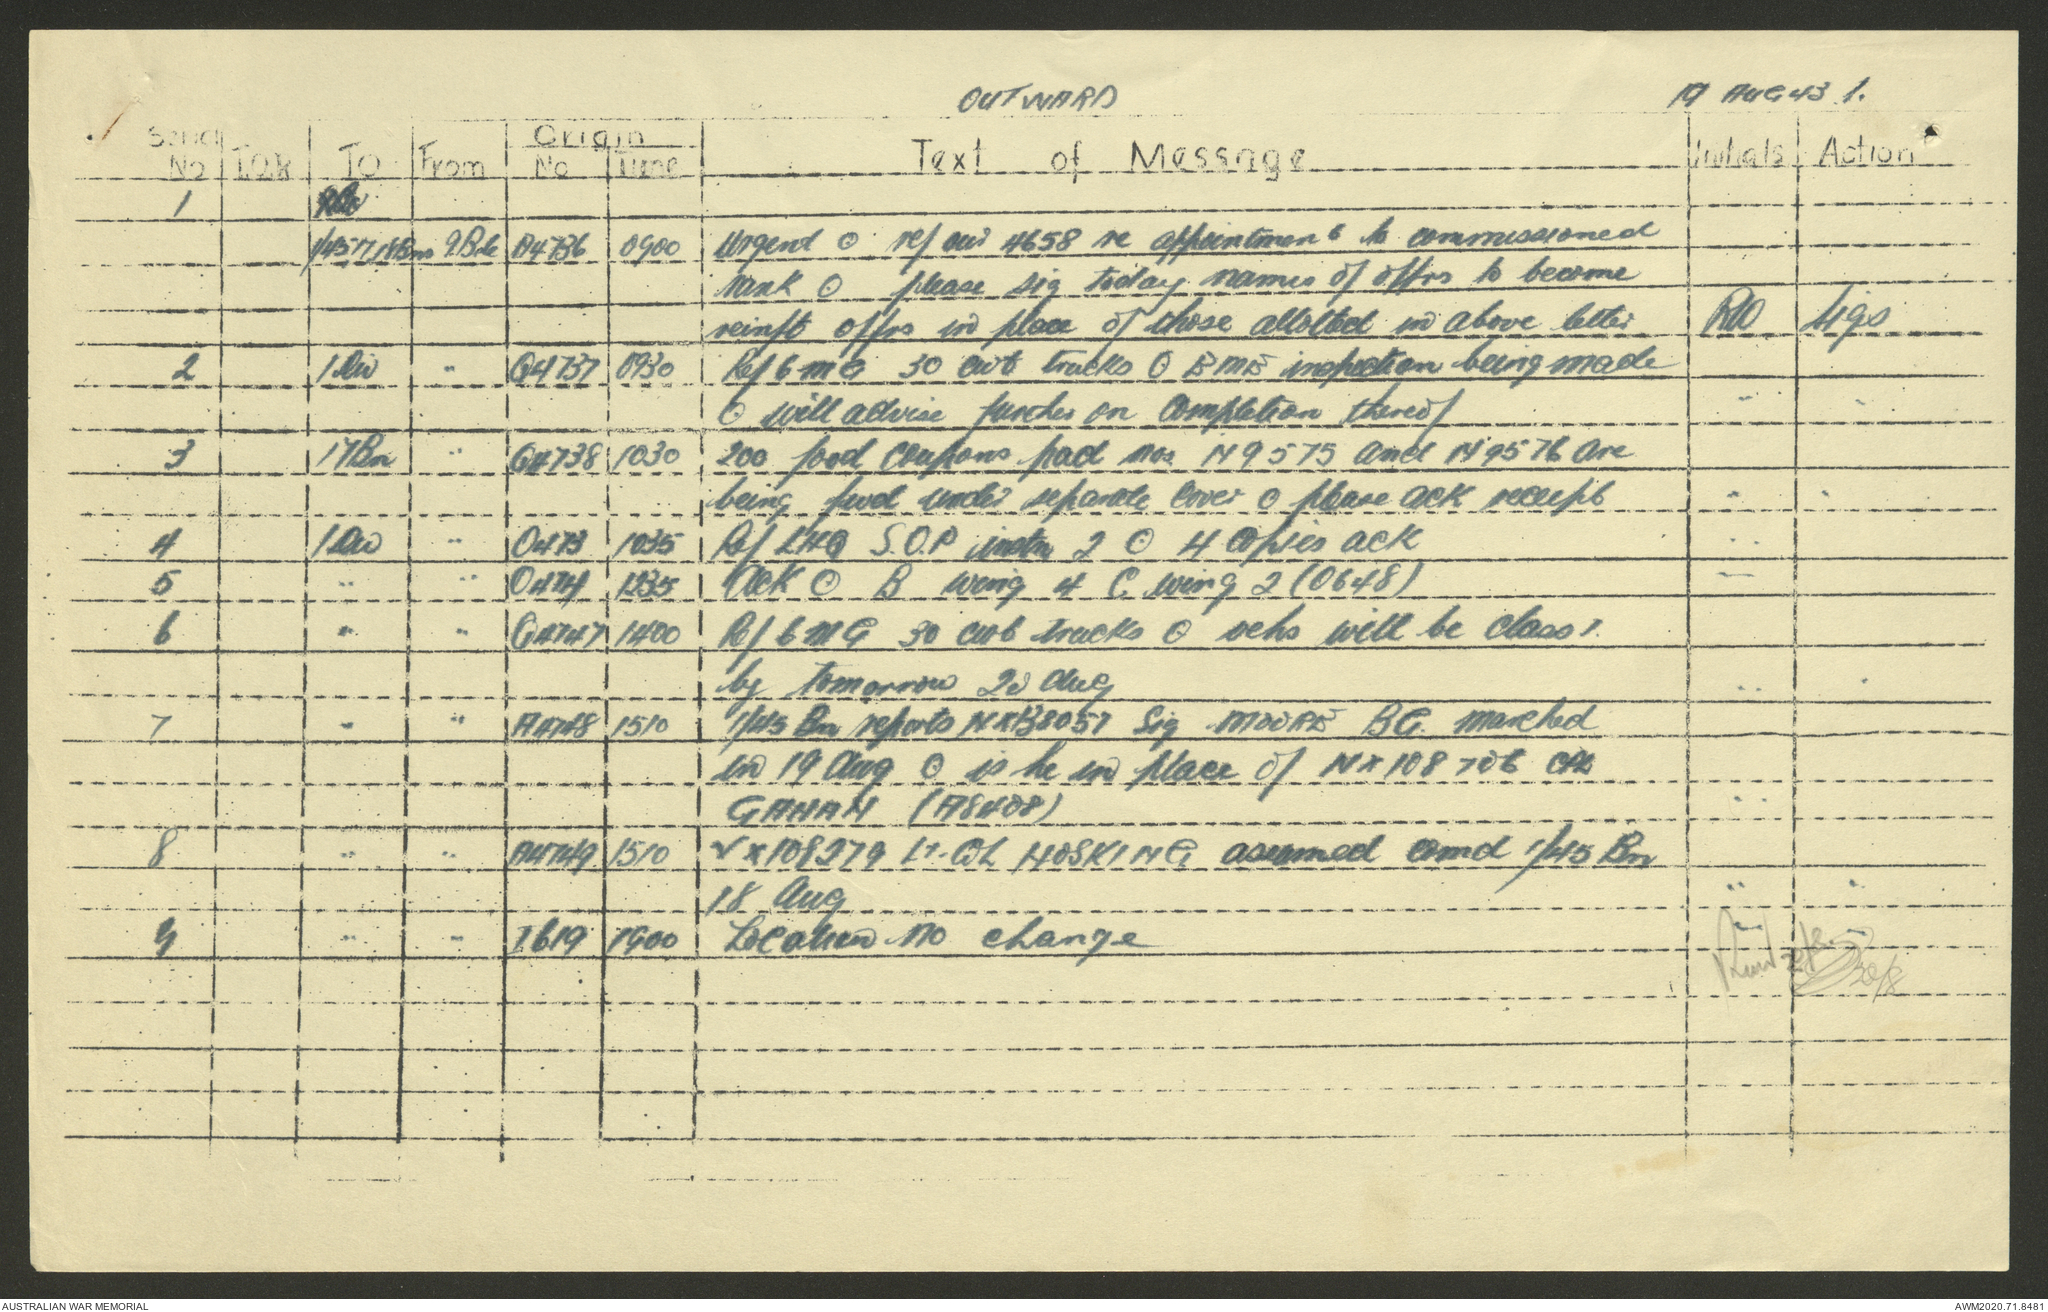 OUTWARD
19 AUG 43 1.
Serial No To From Origin No Time Text of Message Initials Action
1
1/45 17, 18 Bns 9 Bde 0900 Urgent ⊙ ref our 4658 re appointments to commissioned
rank ⊙ please sig today names of offrs to become
reinft offrs in place of those allotted in above letter Sigs
2 1 Div " G4737 0930 Ref 6 MG 30 cwt trucks ⊙ EME inspection being made
⊙ will advise further on completion thereof " "
3 17 Bn " G4738 1030 200 food coupons pad nos N9575 and N9576 are
being fwd under separate cover ⊙ please ack receipt " "
4 1 Div " 1035 Ref LHQ S.O.P instn 2 ⊙ 4 copies ack " "
5 " " 1235 Ack ⊙ B wing 4 C wing 2 (0648) "
6 " " G4747 1400 Ref 6 MG 30 cwt trucks ⊙ vehs will be class 1.
by tomorrow 20 Aug " "
7 " " A4748 1510 1/45 Bn reports Sig MOORE B.G. marched
in 19 Aug ⊙ is he in place of NX108706
GAHAN (A8408) " "
8 " " A4749 1510 VX108279 Lt-Col HOSKING assumed comd 1/45 Bn
18 Aug " "
9 " " I619 1900 Location no change " "
20/8
AUSTRALIAN WAR MEMORIAL
AWM2020.71.8481